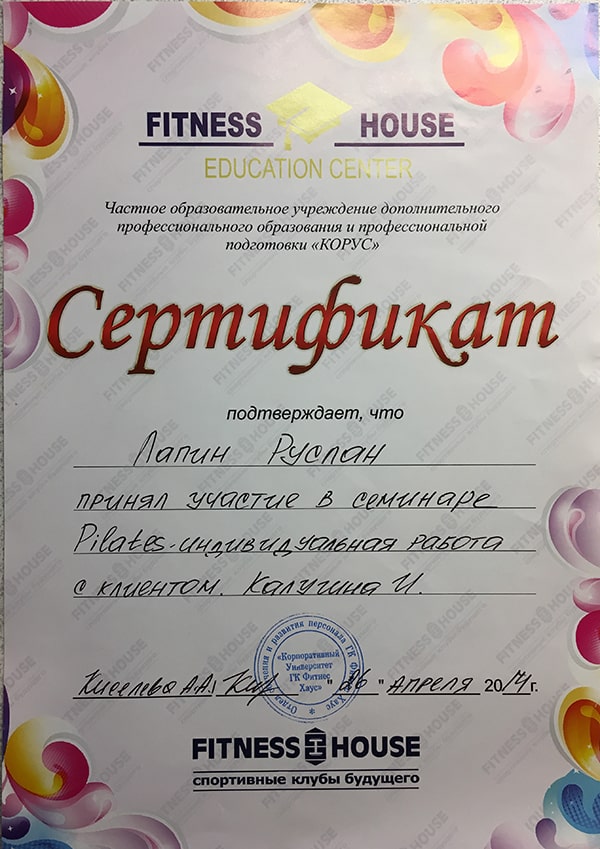 FITNESS HOUSE
EDUCATION CENTER
Частное образовательное учреждение дополнительного
профессионального образования и профессиональной
подготовки «КОРУС»
Сертификат
подтверждает, что
Лапин Руслан
принял участие в семинаре
Pilates-индивидуальная работа
с клиентом. Калугина И.
Отдел обучения и развития персонала ГК Фитнес Хаус
«Корпоративный
Университет
ГК Фитнес
Хаус»
Киселева А.А. "26" Апреля 2017г.
FITNESS HOUSE
спортивные клубы будущего